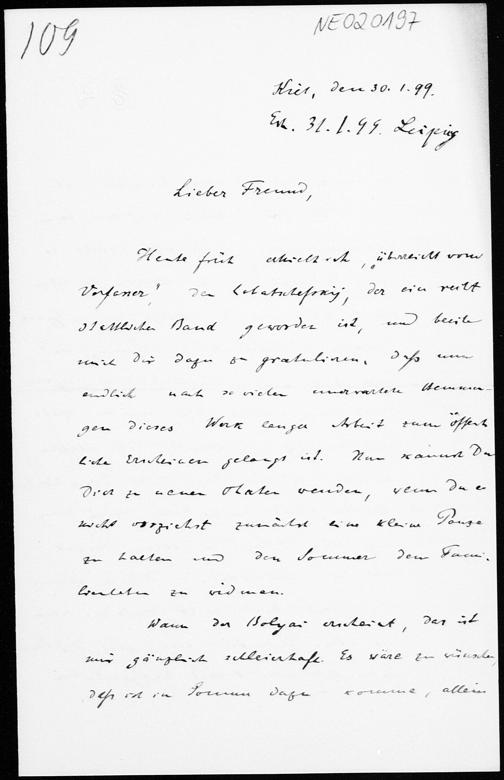 109
NE020197
Kiel, den 30.1.99.
Erh. 31.1.99. Leipzig
Lieber Freund,
Heute früh erhielt ich, "überreicht vom
Verfasser", den Lobatschefskij, der ein recht
stattlicher Band geworden ist, und beeile
mich Dir dazu zu gratuliren, daß nun
endlich nach so vielen unerwarteten Hemmun-
gen dieses Werk langer Arbeit zum öffent-
liche Erscheinen gelangt ist. Nun kannst Du
Dich zu neuen Thaten wenden, wenn Du es
nicht vorziehst zunächst eine kleine Pause
zu halten und den Sommer dem Fami-
lienleben zu widmen.
Wann der Bolyai erscheint, das ist
mir gänzlich schleierhaft. Es wäre zu wünschen,
daß ich im Sommer dazu komme, allein